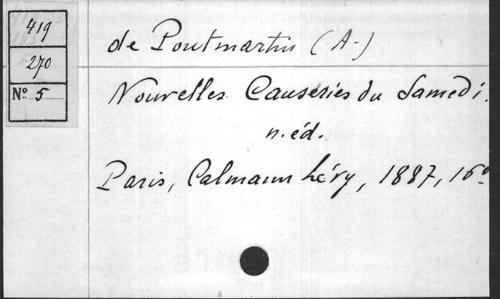 419
270
Nº 5
de Pontmartin (A-)
Nouvelles Causeries du Samedi.
n. éd.
Paris, Calmann Lévy, 1887, 16º